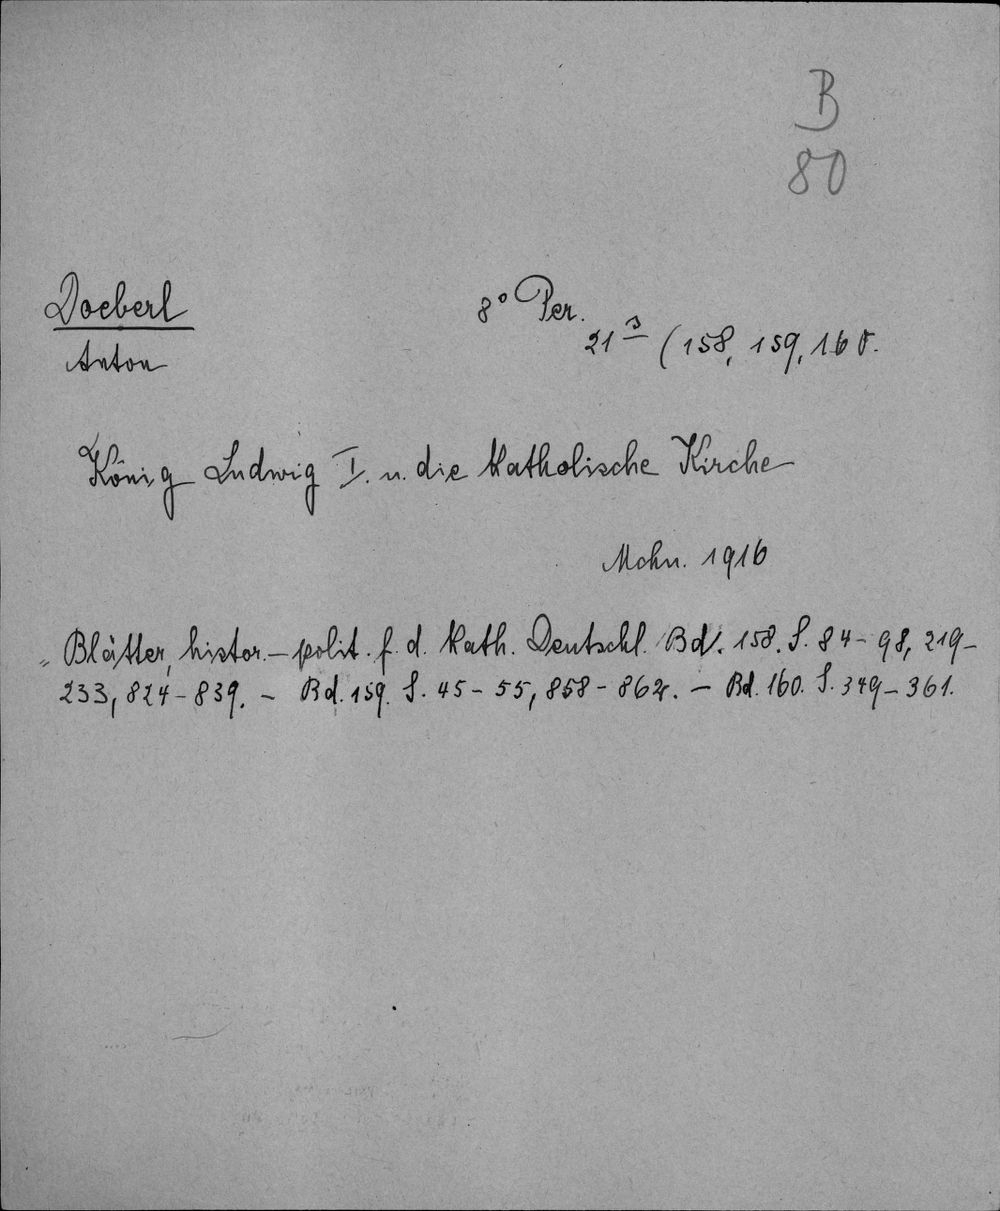 B
80
Doeberl
Anton
8° Per.
21 s (158, 159, 160.
König Ludwig I. u. die katholische Kirche
Mchn. 1916
„Blätter, histor.-polit. f. d. kath. Deutschl. Bd. 158. S. 84-98, 219-
233, 824-839. - Bd. 159. S. 45-55, 858-862. - Bd. 160. S. 349-361.